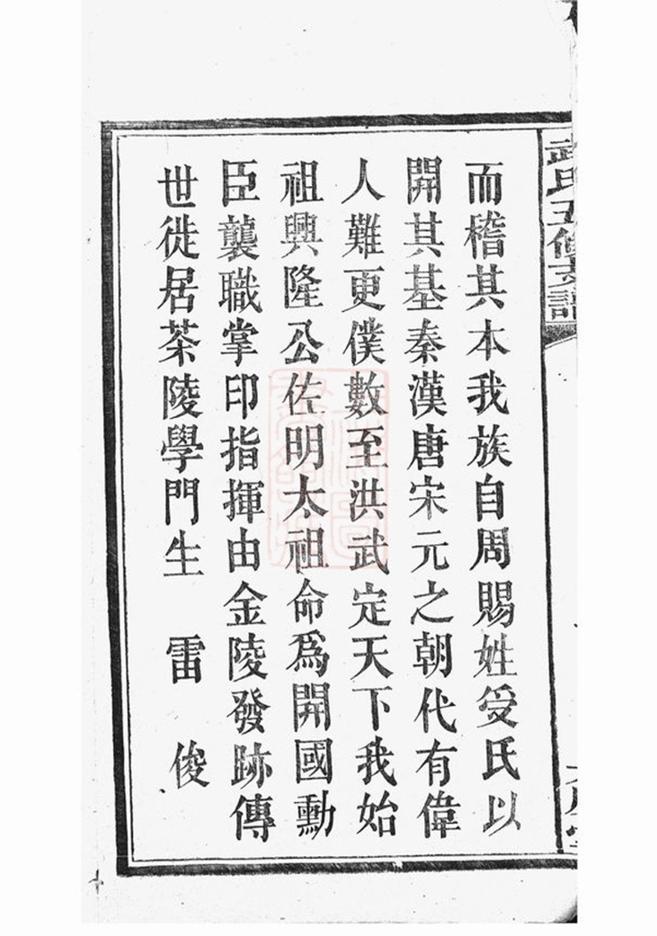 武氏五修支譜
而稽其本我族自周賜姓受氏以
開其基秦漢唐宋元之朝代有偉
人難更僕數至洪武定天下我始
祖興隆公佐明太祖命為開國勳
臣襲職掌印指揮由金陵發跡傳
世徙居茶陵學門生　雷　俊